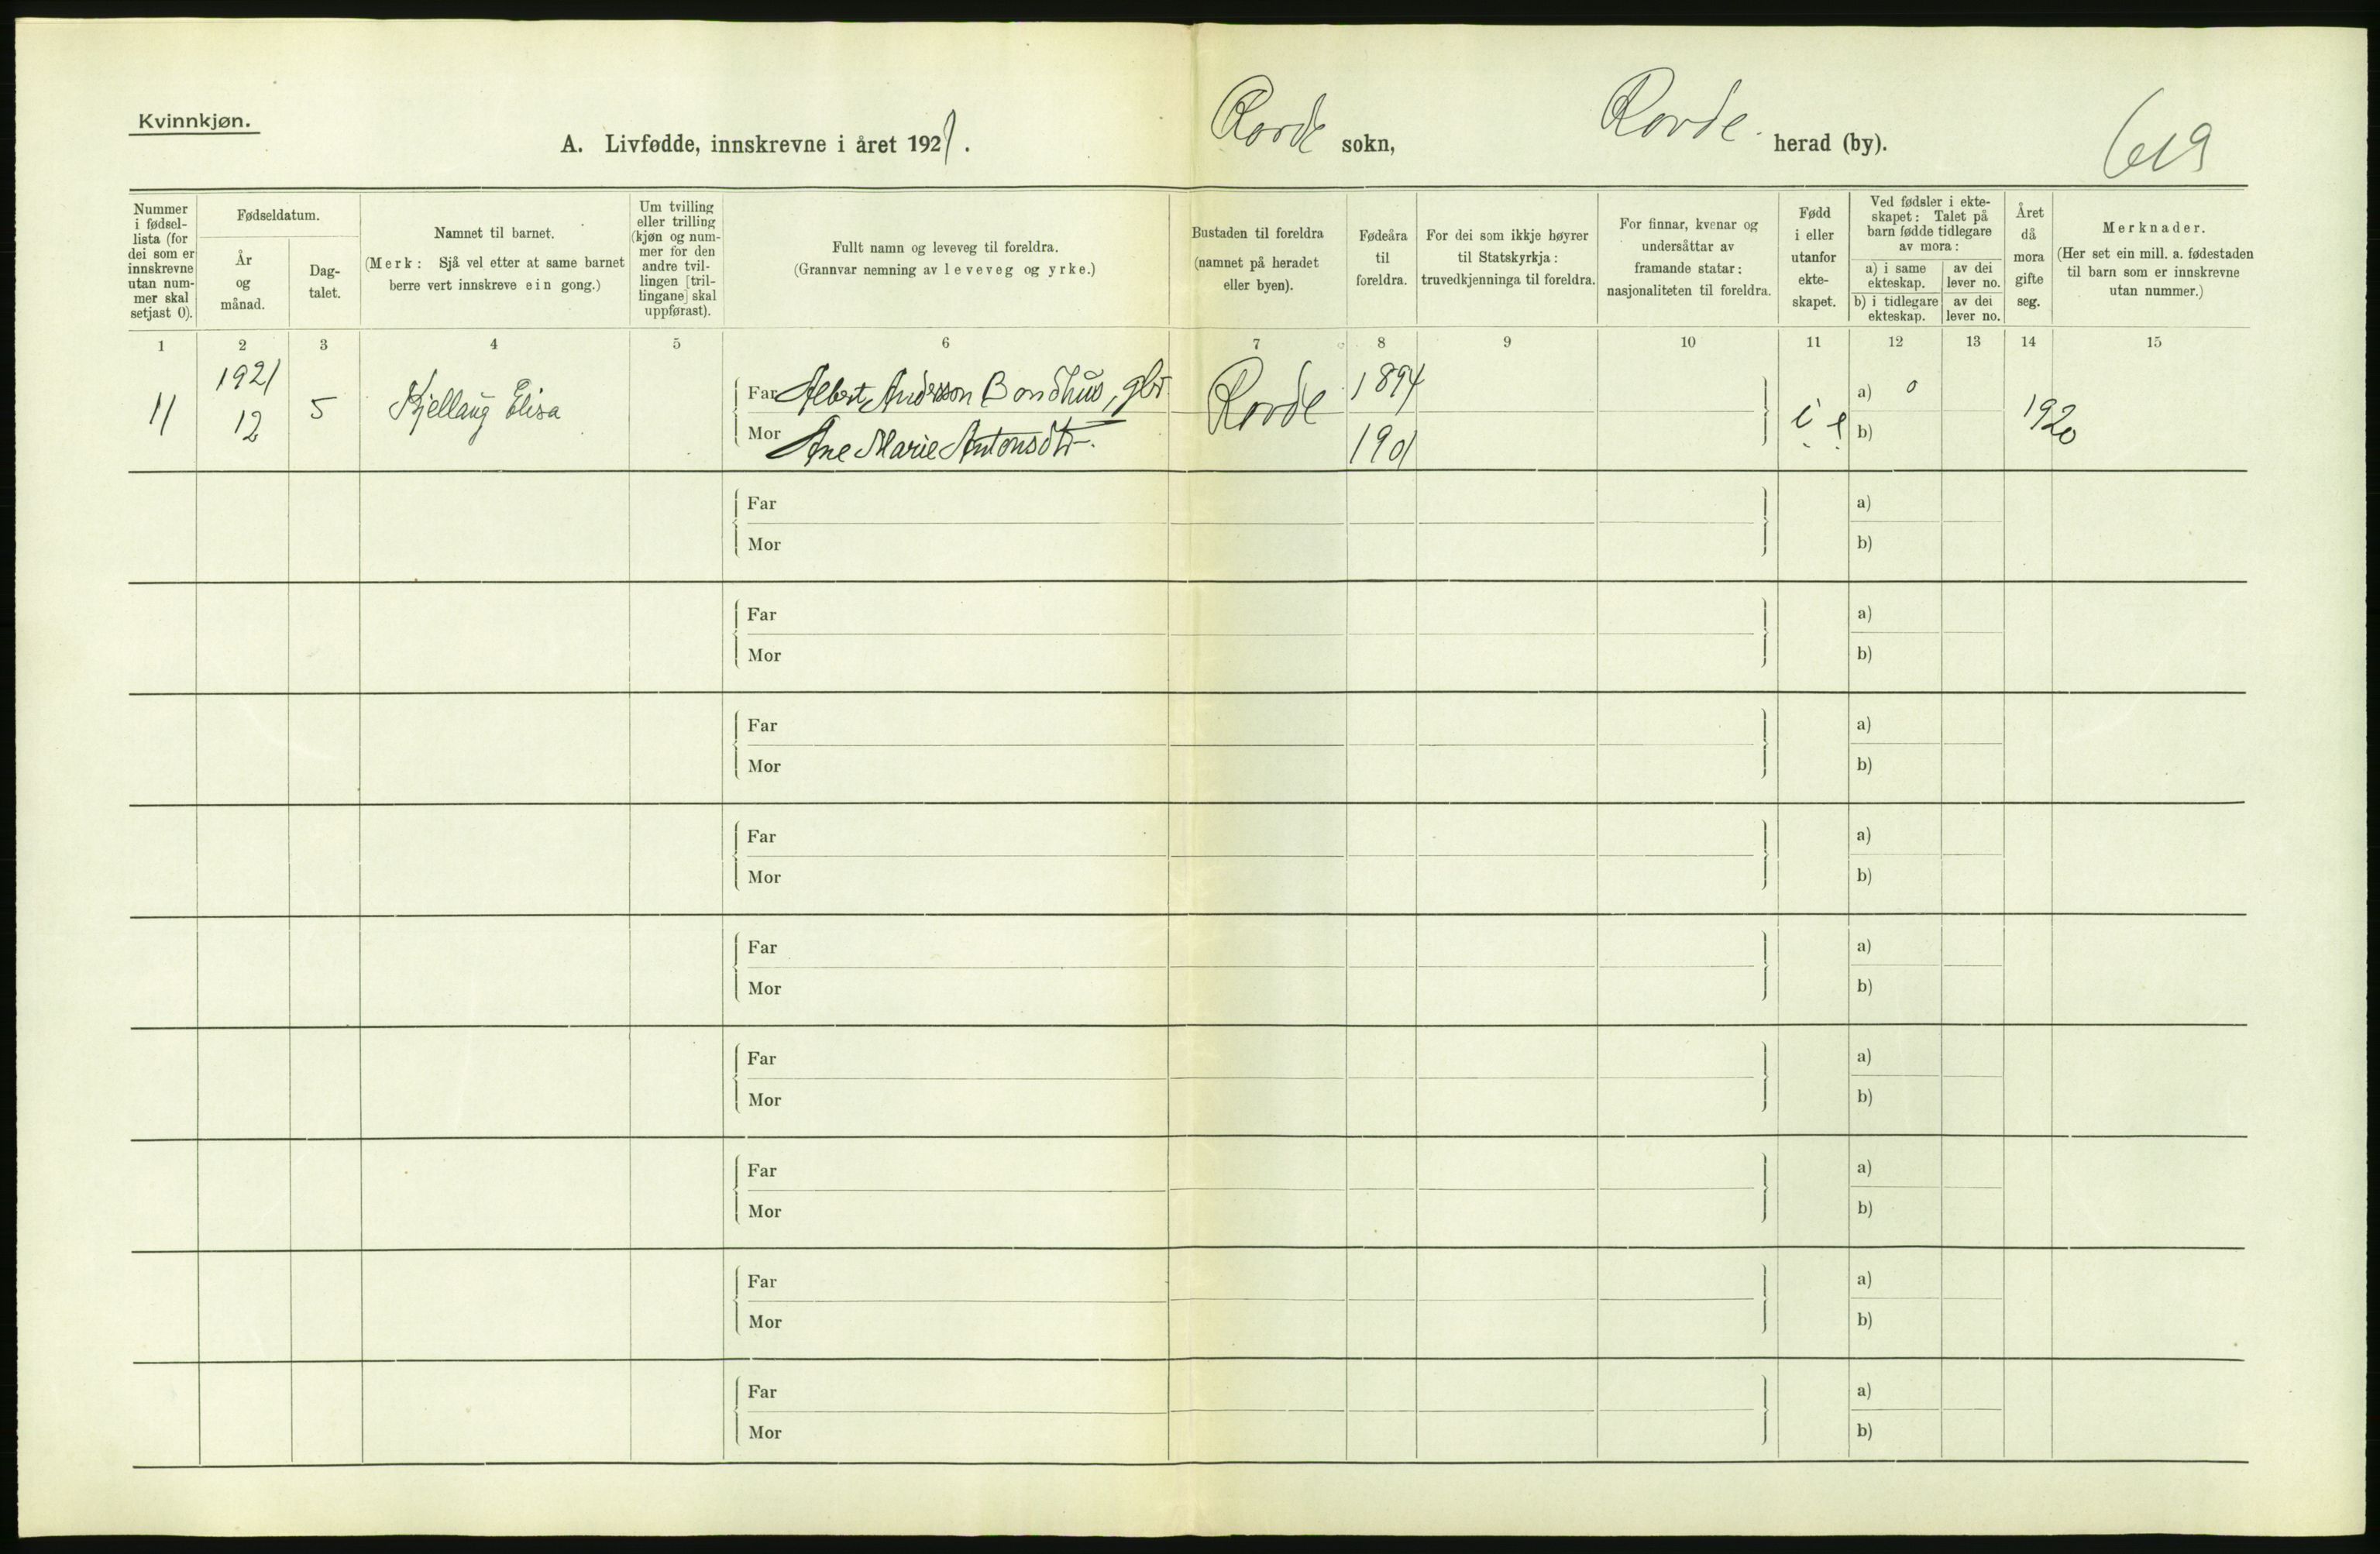 Kvinnkjøn.
A. Livfødde, innskrevne i året 1921.
Rovde sokn, Rovde herad (by).
619
Nummer i fødsel-
lista (for
dei som er
innskrevne
utan num-
mer skal
setjast 0).
Fødseldatum.
År
og
månad.
Dag-
talet.
Namnet til barnet.
(Merk: Sjå vel etter at same barnet
berre vert innskreve ein gong.)
Um tvilling
eller trilling
(kjøn og num-
mer for den
andre tvil-
lingen [tril-
lingane] skal
uppførast).
Fullt namn og leveveg til foreldra.
(Grannvar nemning av leveveg og yrke.)
Bustaden til foreldra
(namnet på heradet
eller byen).
Fødeåra
til
foreldra.
For dei som ikkje høyrer
til Statskyrkja:
truvedkjenninga til foreldra.
For finnar, kvenar og
undersåttar av
framande statar:
nasjonaliteten til foreldra.
Fødd
i eller
utanfor
ekte-
skapet.
Ved fødsler i ekte-
skapet: Talet på
barn fødde tidlegare
av mora:
a) i same
ekteskap.
av dei
lever no.
b) i tidlegare
ekteskap.
av dei
lever no.
Året
då
mora
gifte
seg.
Merknader.
(Her set ein mill. a. fødestaden
til barn som er innskrevne
utan nummer.)
1 2 3 4 5 6 7 8 9 10 11 12 13 14 15
11 1921 12 5 Kjellaug Elisa
Far Albert Andersson Bondhus, gbr. Rovde 1894 i e. a) 0 1920
Mor Ane Marie Antonsdtr. 1901 b)
Far a)
Mor b)
Far a)
Mor b)
Far a)
Mor b)
Far a)
Mor b)
Far a)
Mor b)
Far a)
Mor b)
Far a)
Mor b)
Far a)
Mor b)
Far a)
Mor b)